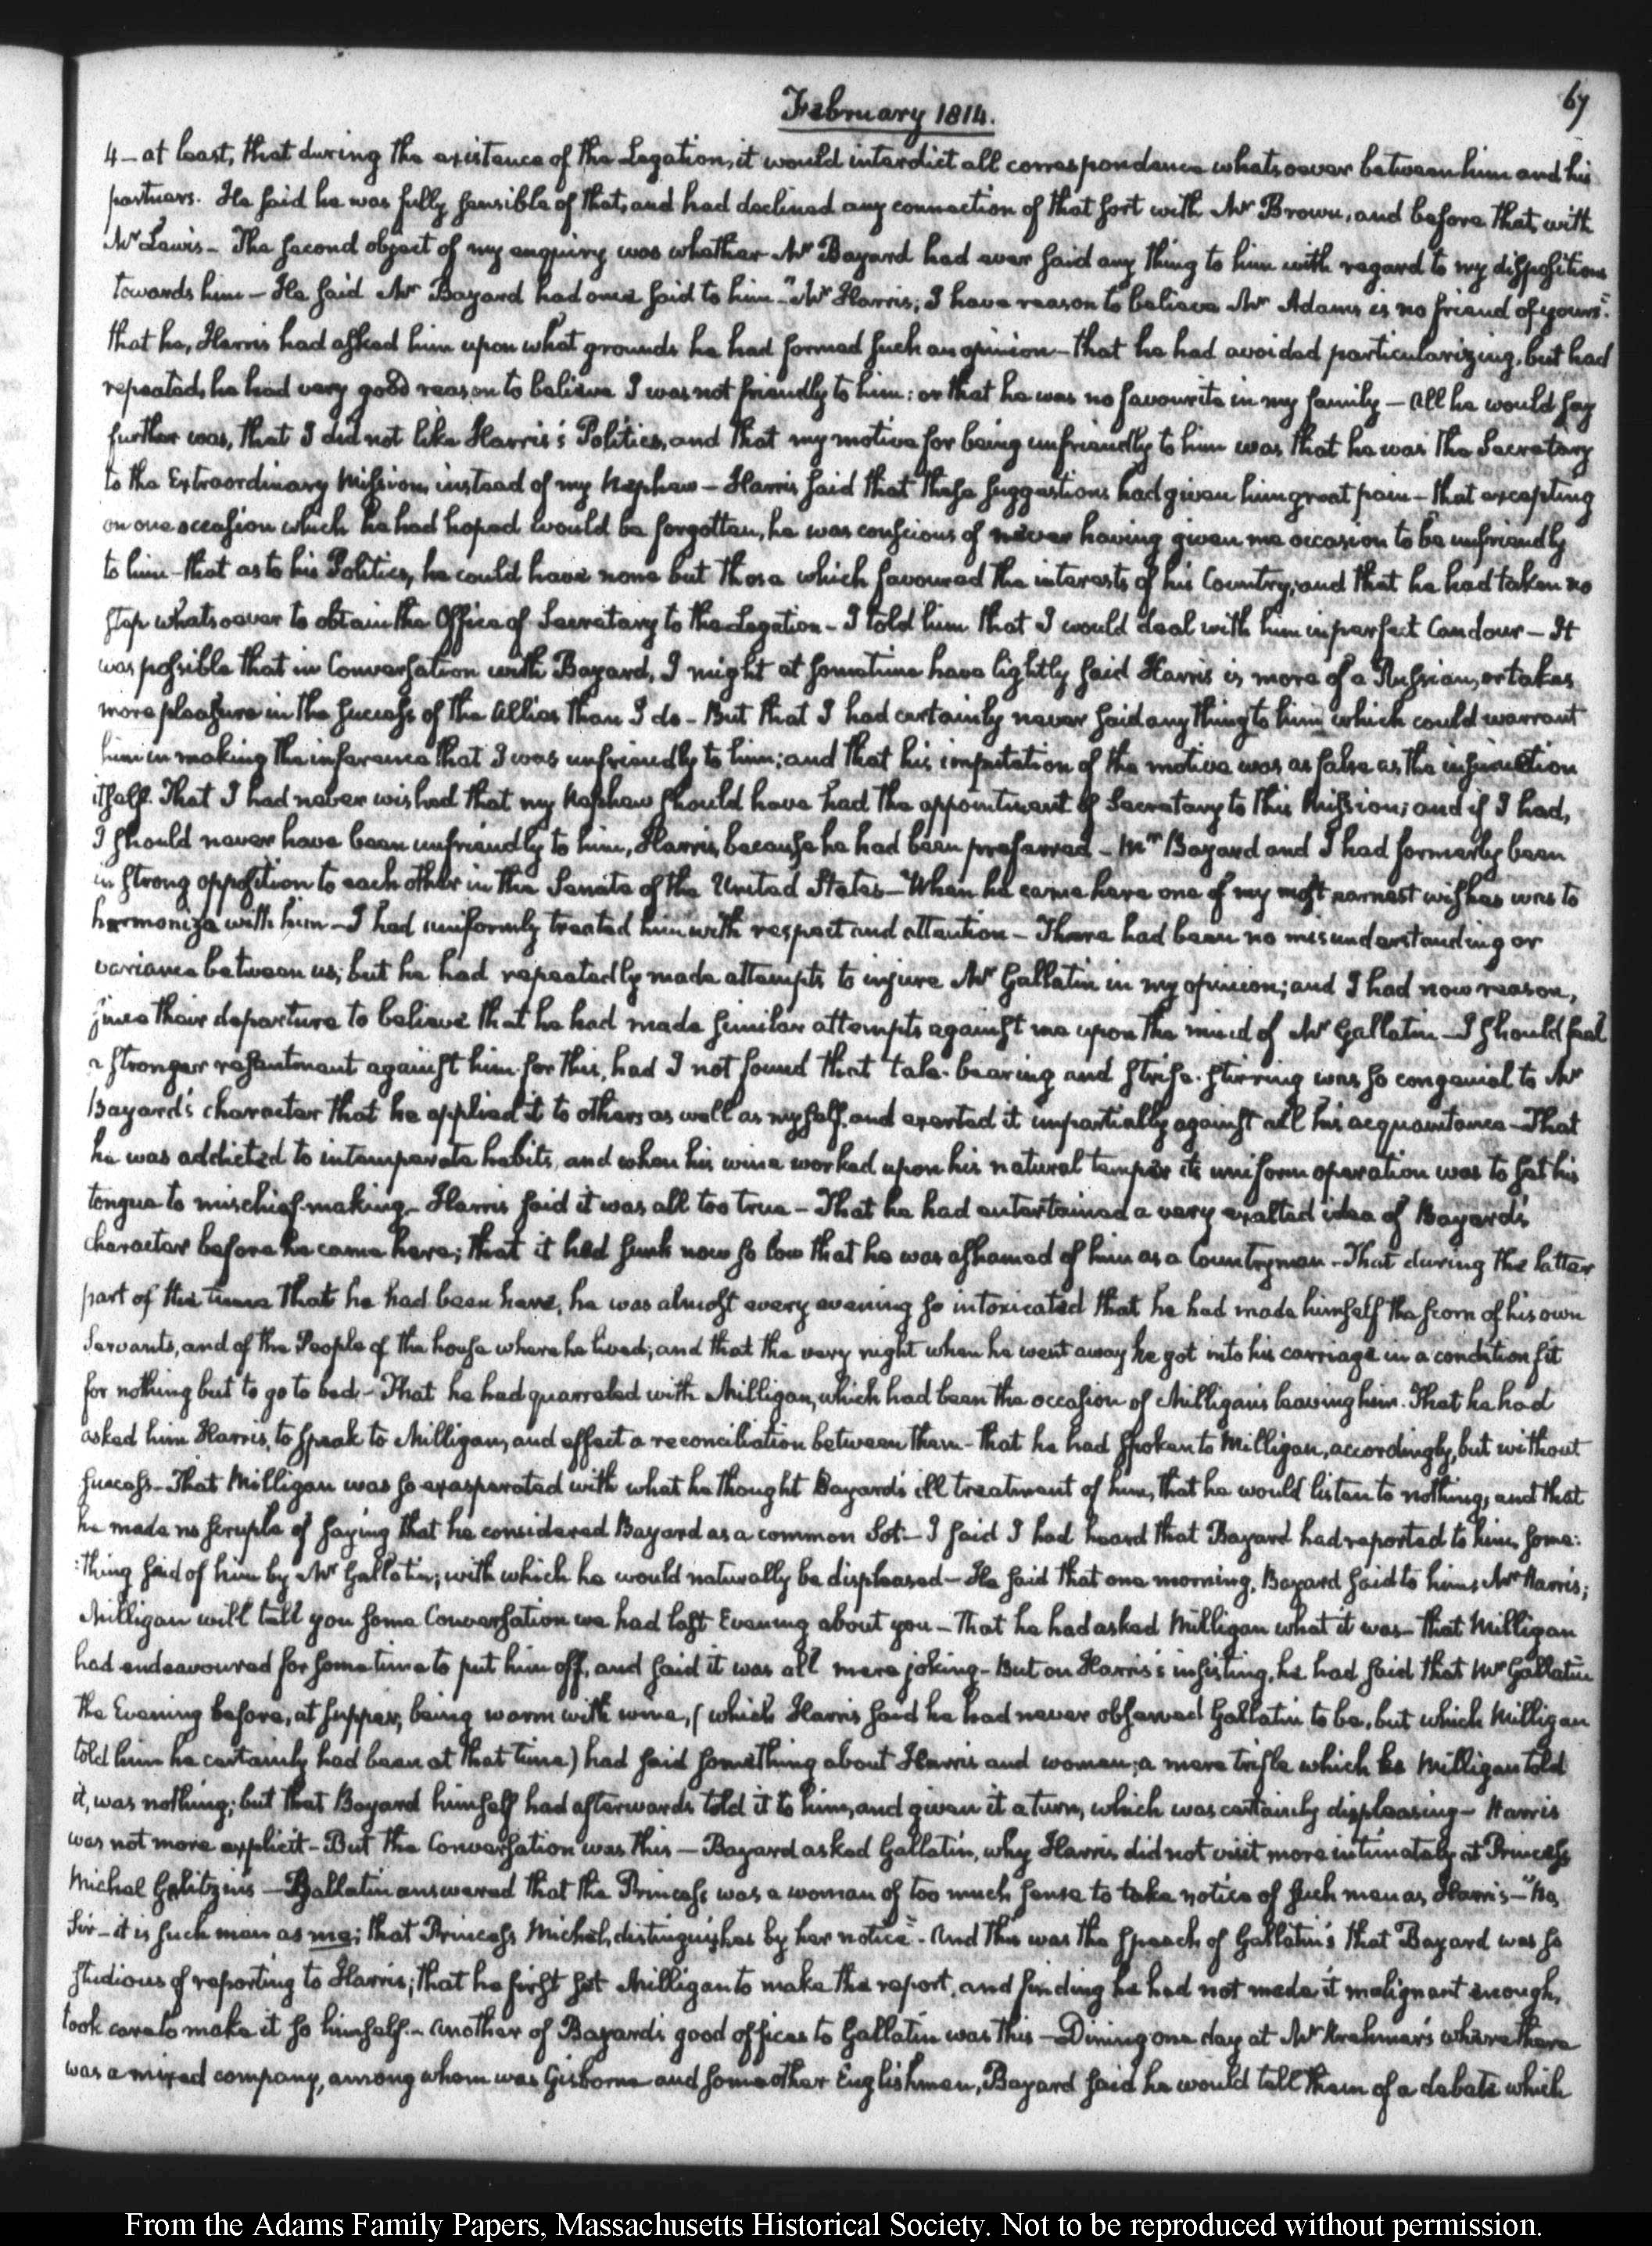 February 1814.
67
4 – at least, that during the existence of the Legation, it would interdict all correspondence whatsoever between him and his
partners. He said he was fully sensible of that, and had declined any connection of that sort with Mr Brown, and before that, with
Mr Lewis – The second object of my enquiry was whether Mr Bayard had ever said any thing to him with regard to my dispositions
towards him – He said Mr Bayard had once said to him – "Mr Harris; I have reason to believe Mr Adams is no friend of yours".
that he, Harris had asked him upon what grounds he had formed such an opinion – that he had avoided particularizing, but had
repeated, he had very good reason to believe I was not friendly to him: or that he was no favourite in my family – All he would say
further was, that I did not like Harris's Politics, and that my motive for being unfriendly to him was that he was the Secretary
to the Extraordinary Mission, instead of my Nephew – Harris said that these suggestions had given him great pain – that excepting
on one occasion which he had hoped would be forgotten, he was conscious of never having given me occasion to be unfriendly
to him – that as to his Politics, he could have none but those which favoured the interests of his Country; and that he had taken no
step whatsoever to obtain the Office of Secretary to the Legation – I told him that I would deal with him in perfect Candour – It
was possible that in Conversation with Bayard, I might at sometime have lightly said Harris is more of a Russian, or takes
more pleasure in the success of the Allies than I do – But that I had certainly never said any thing to him which could warrant
him in making the inference that I was unfriendly to him; and that his imputation of the motive was as false as the insinuation
itself. That I had never wished that my Nephew should have had the appointment of Secretary to this Mission; and if I had,
I should never have been unfriendly to him, Harris, because he had been preferred – Mr Bayard and I had formerly been
in strong opposition to each other in the Senate of the United States – When he came here one of my most earnest wishes was to
harmonize with him – I had uniformly treated him with respect and attention – There had been no misunderstanding or
variance between us; but he had repeatedly made attempts to injure Mr Gallatin in my opinion; and I had now reason,
since their departure to believe that he had made similar attempts against me upon the mind of Mr Gallatin – I should feel
a stronger resentment against him for this, had I not found that tale-bearing and strife-stirring was so congenial to Mr
Bayard's character that he applied it to others as well as myself, and exerted it impartially against all his acquaintance – That
he was addicted to intemperate habits, and when his wine worked upon his natural temper its uniform operation was to set his
tongue to mischief-making – Harris said it was all too true – That he had entertained a very exalted idea of Bayard's
character before he came here; that it had sunk now so low that he was ashamed of him as a Countryman – That during the latter
part of the time that he had been here, he was almost every evening so intoxicated that he had made himself the scorn of his own
Servants, and of the People of the house where he lived; and that the very night when he went away he got into his carriage in a condition fit
for nothing but to go to bed – That he had quarreled with Milligan, which had been the occasion of Milligan's leaving him. That he had
asked him Harris, to speak to Milligan, and effect a reconciliation between them – that he had spoken to Milligan, accordingly, but without
success – That Milligan was so exasperated with what he thought Bayard's ill treatment of him, that he would listen to nothing, and that
he made no scruple of saying that he considered Bayard as a common Sot – I said I had heard that Bayard had reported to him, some:
:thing said of him by Mr Gallatin; with which he would naturally be displeased – He said that one morning, Bayard said to him, Mr Harris;
Milligan will tell you some Conversation we had last Evening about you – That he had asked Milligan what it was – that Milligan
had endeavoured for some time to put him off, and said it was all mere joking – But on Harris's insisting, he had said that Mr Gallatin
the Evening before, at supper, being warm with wine, (which Harris said he had never observed Gallatin to be, but which Milligan
told him he certainly had been at that time) had said something about Harris and women; a mere trifle which as Milligan told
it, was nothing; but that Bayard himself had afterwards told it to him, and given it a turn, which was certainly displeasing – Harris
was not more explicit – But the Conversation was this – Bayard asked Gallatin, why Harris did not visit more intimately at Princess
Michel Galitzin's – Gallatin answered that the Princess was a woman of too much sense to take notice of such men as Harris – "No,
Sir – it is such men as me; that Princess Michel, distinguishes by her notice". And this was the speech of Gallatin's that Bayard was so
studious of reporting to Harris; that he first set Milligan to make the report, and finding he had not made it malignant enough,
took care to make it so himself – Another of Bayard's good offices to Gallatin was this – Dining one day at Mr Krehmer's where there
was a mixed company, among whom was Gisborne and some other Englishmen, Bayard said he would tell them of a debate which
From the Adams Family Papers, Massachusetts Historical Society. Not to be reproduced without permission.